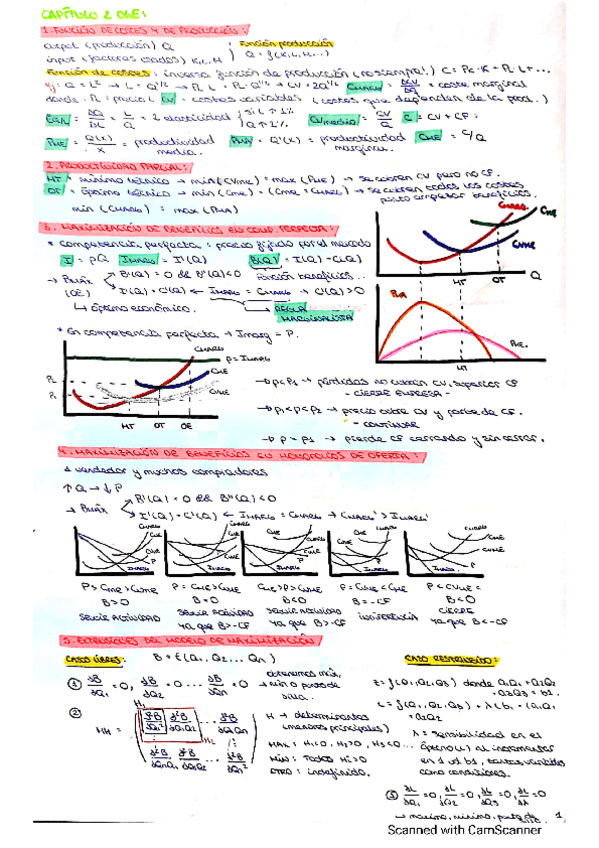 CAPÍTULO 2 OGE:
1. FUNCIÓN DE COSTES Y DE PRODUCCIÓN:
output (producción) Q
Función producción
input (factores usados) K, L, H
Q = f(K, L, H, ...)
Función de costes: inversa función de producción (no siempre!) C = PK·K + PL·L + ...
donde: PL: precio L CV = costes variables (costes que dependen de la prod.)
CMARG = = coste marginal
= elasticidad
L ↑ 1%
Q ↑ 2%
CVmedio = CV/Q
C = CV + CF
PME = Q(x)/x = productividad media.
PMA = Q'(x) = productividad marginal.
CME = C/Q
2. PRODUCTIVIDAD PARCIAL:
MT = mínimo técnico → min(CVME) = max(PME) → se cubren CV pero no CF.
OT = óptimo técnico → min(CME) = (CME = CMARG) → se cubren todos los costes
puedo empezar beneficios.
min (CMARG) = max (PMA)
3. MAXIMIZACIÓN DE BENEFICIOS EN COMP. PERFECTA:
* competencia perfecta: precio fijado por el mercado
I = pQ IMARG = I'(Q) B(Q) = I(Q) - C(Q)
→ BMÁX
(OE)
B'(Q) = 0 && B''(Q) < 0
función beneficios.
I'(Q) = C'(Q) ← IMARG = CMARG → C''(Q) > 0
↳ óptimo económico.
REGLA
MARGINALISTA
CMARG
CME
CVME
MT
OT
Q
PMA
PME
MT
* En competencia perfecta → Imarg = P.
CMARG
P = IMARG
CME
CVME
P2
P1
MT
OT
OE
→ p < P1 → pérdidas no cubren CV. Superior CF
- CIERRE EMPRESA -
→ p1 < p < p2 → precio cubre CV y parte de CF.
- CONTINUAR
→ p = p1 → pierde CF cerrando y sin cerrar.
4. MAXIMIZACIÓN DE BENEFICIOS EN MONOPOLIOS DE OFERTA:
1 vendedor y muchos compradores
↑Q → ↓P
→ BMÁX
B'(Q) = 0 && B''(Q) < 0
I'(Q) = C'(Q) ← IMARG = CMARG → CMARG' > IMARG'
P > CME > CVME
B > 0
SEGUIR ACTIVIDAD
P = CME > CVME
B = 0
SEGUIR ACTIVIDAD
ya que B > -CF
CME > P > CVME
B < 0
SEGUIR ACTIVIDAD
ya que B > -CF
P = CVME < CME
B = -CF
INDIFERENCIA
P < CVME
B < 0
CIERRE
ya que B < -CF
5. EXTENSIONES DEL MODELO DE MAXIMIZACIÓN
CASO LIBRES:
B = f(Q1, Q2 ... Qn)
① ∂B/∂Q1 = 0, ∂B/∂Q2 = 0 ... ∂B/∂Qn = 0
→ obtenemos máx, mín o punto de silla.
②
HH =
H1
H2
H → determinantes
(menores principales)
MAX: H1<0, H2>0, H3<0...
MIN: Todos Hi>0
OTRO: indefinido.
CASO RESTRINGIDO:
Z = f(Q1, Q2, Q3) donde a1Q1 + a2Q2
+ a3Q3 = b1.
λ = sensibilidad en el
óptimo (L) al incrementar
en 1 ud b1, tantas variables
como condiciones.
③ ∂L/∂Q1 = 0, ∂L/∂Q2 = 0, ∂L/∂Q3 = 0, ∂L/∂λ = 0
→ máximo, mínimo, punto de
1
Scanned with CamScanner